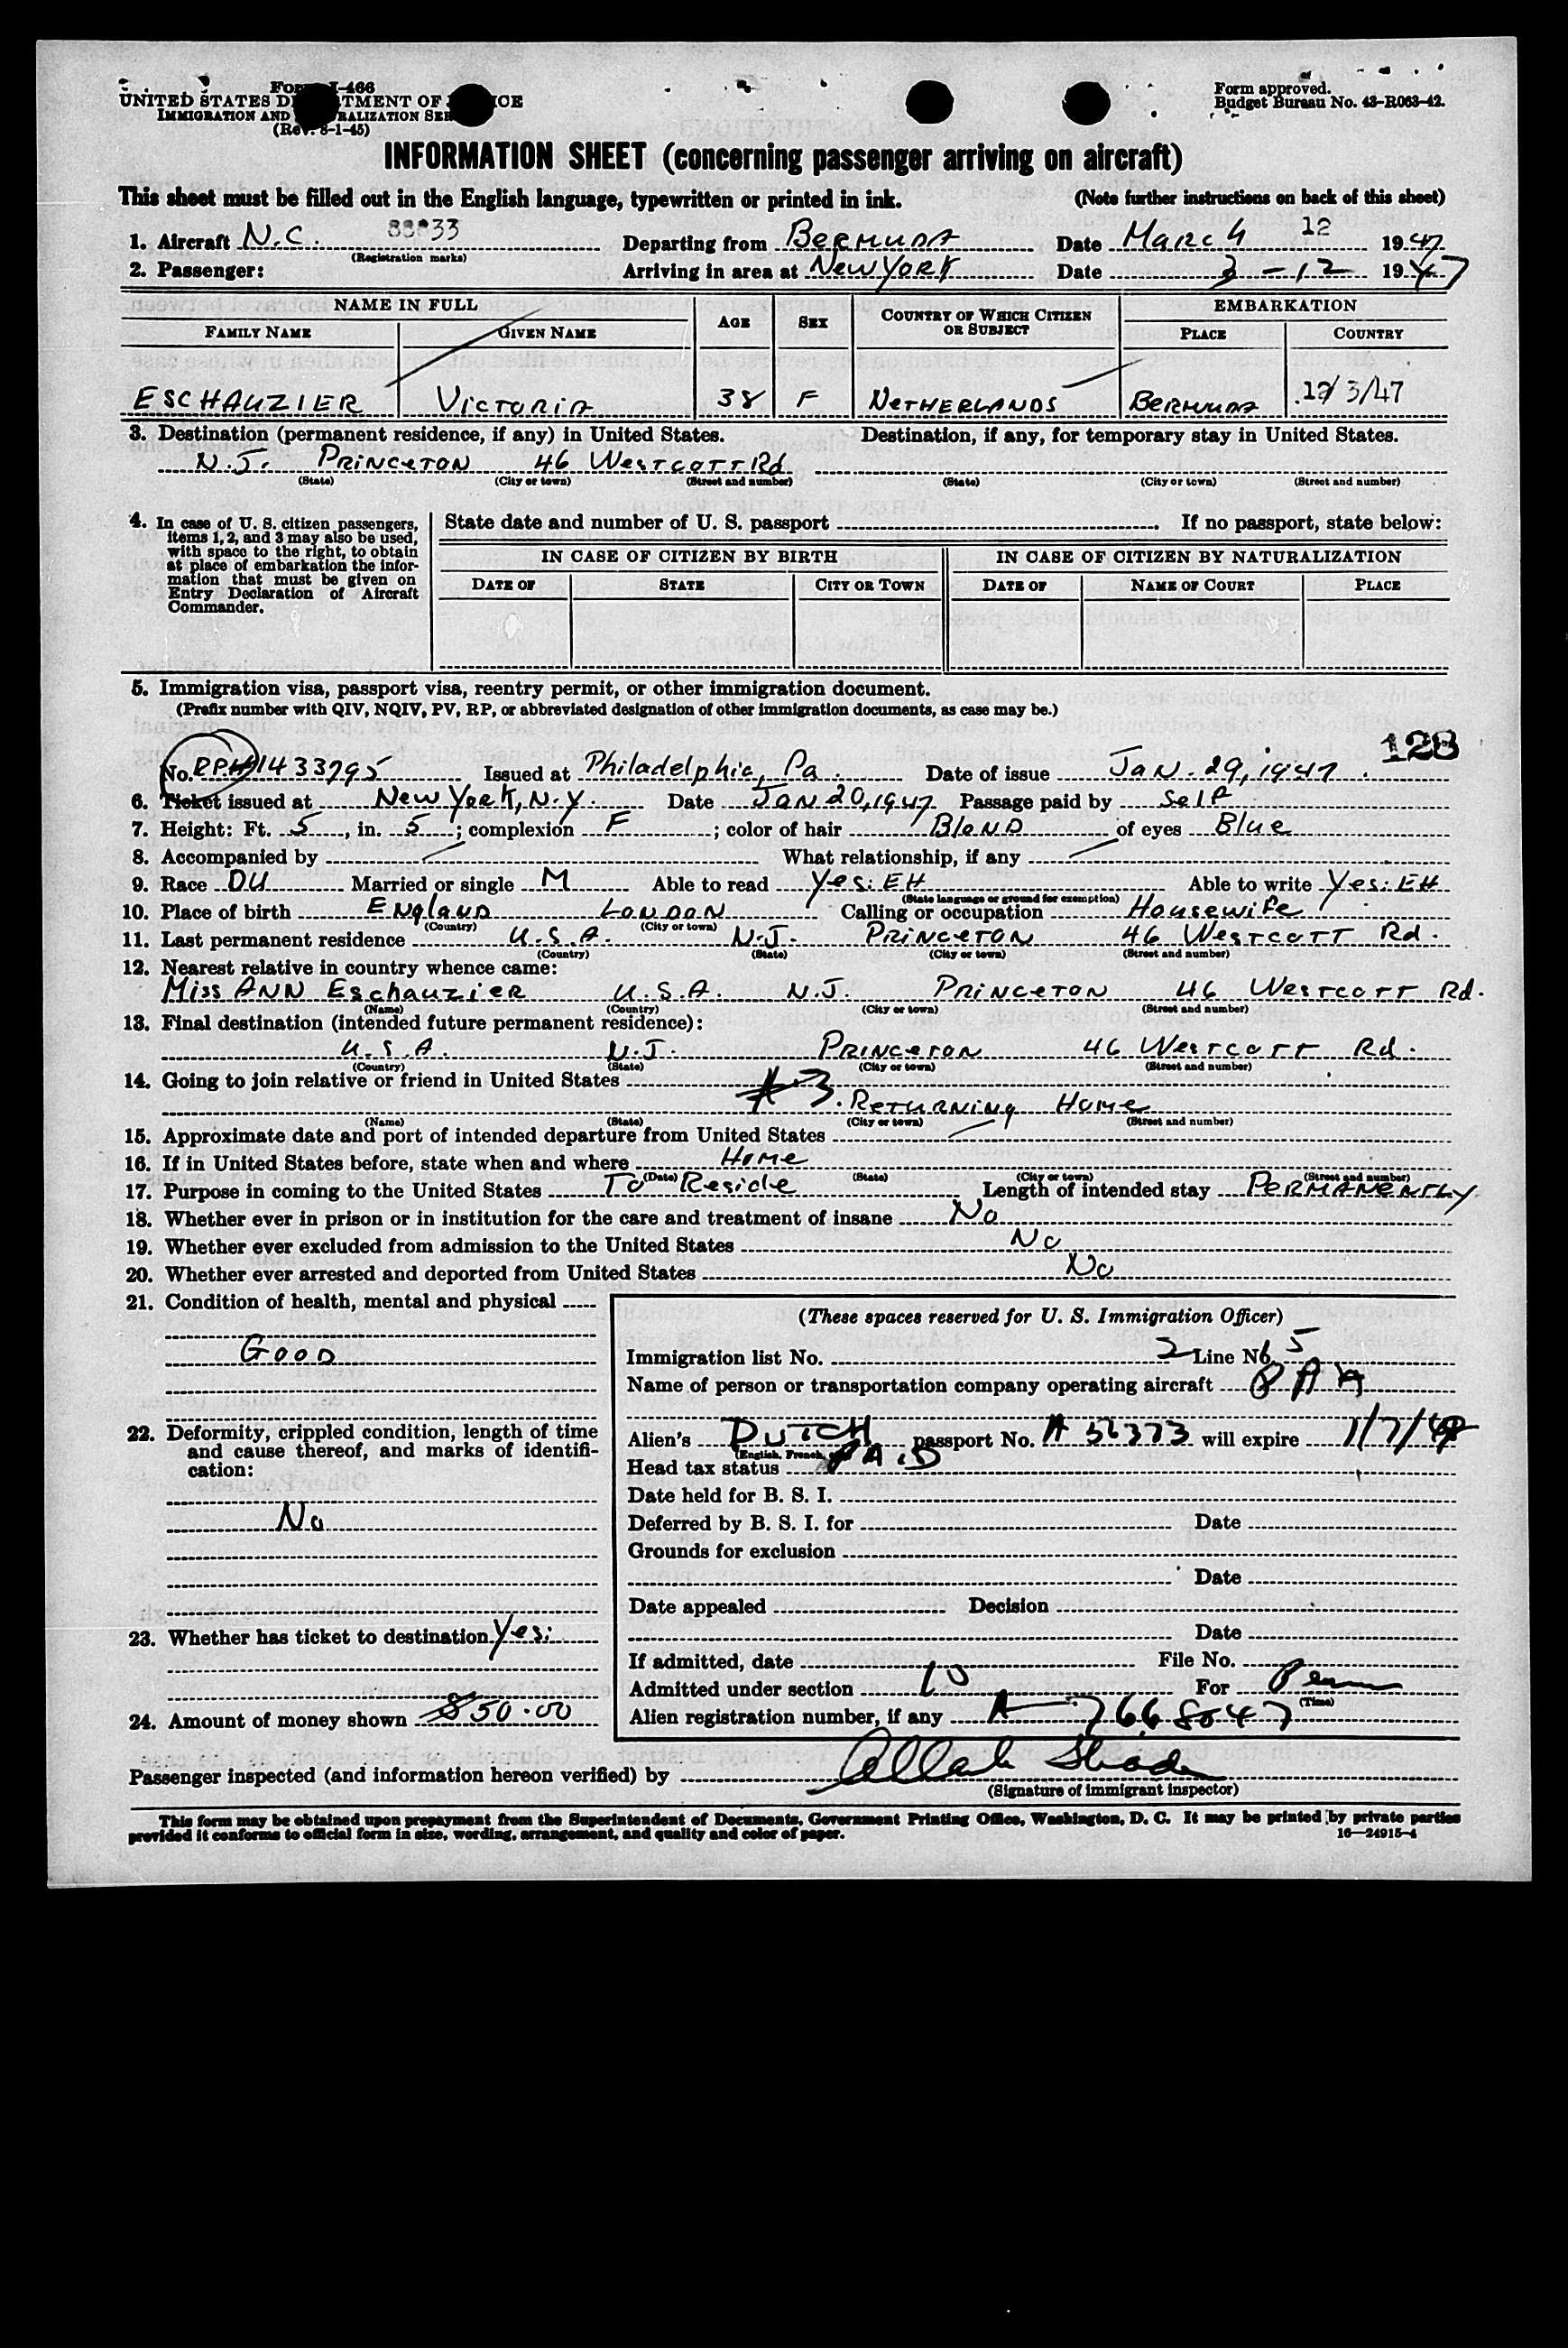 Form I-466
UNITED STATES DEPARTMENT OF JUSTICE
IMMIGRATION AND NATURALIZATION SERVICE
(Rev. 8-1-45)
Form approved.
Budget Bureau No. 43-R063-42.
INFORMATION SHEET (concerning passenger arriving on aircraft)
This sheet must be filled out in the English language, typewritten or printed in ink. (Note further instructions on back of this sheet)
1. Aircraft N.C. Departing from BERMUDA Date MARCH 12 1947
(Registration marks)
2. Passenger: Arriving in area at NEW YORK Date 3-12 1947
NAME IN FULL AGE SEX COUNTRY OF WHICH CITIZEN OR SUBJECT EMBARKATION
FAMILY NAME GIVEN NAME PLACE COUNTRY
ESCHAUZIER VICTORIA 38 F NETHERLANDS BERMUDA 12/3/47
3. Destination (permanent residence, if any) in United States. Destination, if any, for temporary stay in United States.
N.J. PRINCETON 46 WESTCOTT Rd
(State) (City or town) (Street and number) (State) (City or town) (Street and number)
4. In case of U. S. citizen passengers, items 1, 2, and 3 may also be used, with space to the right, to obtain at place of embarkation the information that must be given on Entry Declaration of Aircraft Commander.
State date and number of U. S. passport If no passport, state below:
IN CASE OF CITIZEN BY BIRTH IN CASE OF CITIZEN BY NATURALIZATION
DATE OF STATE CITY OR TOWN DATE OF NAME OF COURT PLACE
5. Immigration visa, passport visa, reentry permit, or other immigration document.
(Prefix number with QIV, NQIV, PV, RP, or abbreviated designation of other immigration documents, as case may be.)
128
No. RP#1433795 Issued at Philadelphia, Pa. Date of issue JAN. 29, 1947.
6. Ticket issued at New York, N.Y. Date JAN 20, 1947 Passage paid by Self
7. Height: Ft. 5, in. 5; complexion F; color of hair BLOND of eyes Blue
8. Accompanied by What relationship, if any
9. Race DU Married or single M Able to read Yes: EH Able to write Yes: EH
(State language or ground for exemption)
10. Place of birth ENGLAND LONDON Calling or occupation Housewife
(Country) (City or town)
11. Last permanent residence U.S.A. N.J. PRINCETON 46 WESTCOTT Rd.
(Country) (State) (City or town) (Street and number)
12. Nearest relative in country whence came:
Miss ANN Eschauzier U.S.A. N.J. PRINCETON 46 WESTCOTT Rd.
(Name) (Country) (City or town) (Street and number)
13. Final destination (intended future permanent residence):
U.S.A. N.J. PRINCETON 46 WESTCOTT Rd.
(Country) (State) (City or town) (Street and number)
14. Going to join relative or friend in United States
#3. Returning Home
(Name) (State) (City or town) (Street and number)
15. Approximate date and port of intended departure from United States
16. If in United States before, state when and where Home
(Date) (State) (City or town) (Street and number)
17. Purpose in coming to the United States To Reside Length of intended stay PERMANENTLY
18. Whether ever in prison or in institution for the care and treatment of insane No
19. Whether ever excluded from admission to the United States No
20. Whether ever arrested and deported from United States No
21. Condition of health, mental and physical
GOOD
22. Deformity, crippled condition, length of time and cause thereof, and marks of identification:
No
23. Whether has ticket to destination Yes:
24. Amount of money shown $50.00
(These spaces reserved for U. S. Immigration Officer)
Immigration list No. 2 Line No. 5
Name of person or transportation company operating aircraft PAA
Alien's DUTCH passport No. A 56373 will expire 1/7/48
(English, French,
Head tax status PAID
Date held for B. S. I.
Deferred by B. S. I. for Date
Grounds for exclusion
Date
Date appealed Decision
Date
If admitted, date File No.
Admitted under section 10 For Perm
(Time)
Alien registration number, if any A-7668047
Passenger inspected (and information hereon verified) by
(Signature of immigrant inspector)
This form may be obtained upon prepayment from the Superintendent of Documents, Government Printing Office, Washington, D. C. It may be printed by private parties
provided it conforms to official form in size, wording, arrangement, and quality and color of paper. 16—24915-4